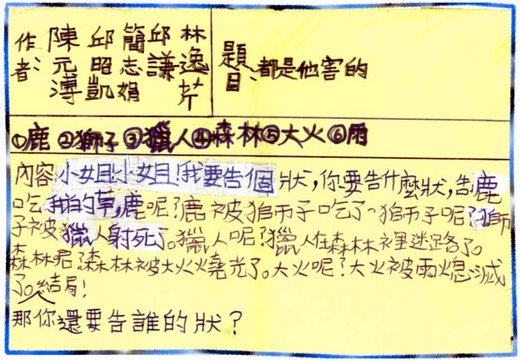 作者：
陳元溥
邱昭凱
簡志娟
邱謙
林逸芹
題目：都是他害的
①鹿②獅子③獵人④森林⑤大火⑥雨
內容 小姐!小姐!我要告個狀,你要告什麼狀,告鹿
吃我的草,鹿呢?鹿被獅子吃了、獅子呢?獅
子被獵人射死了。獵人呢?獵人在森林裡迷路了。
森林呢?森林被大火燒光了。大火呢?大火被雨熄滅
了。結局!
那你還要告誰的狀？